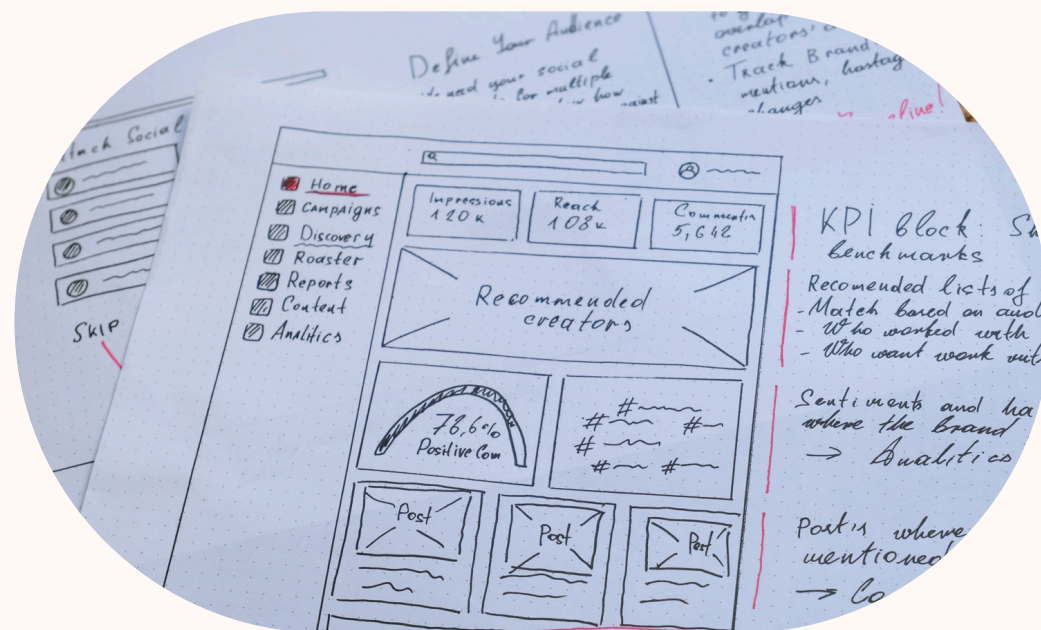 Define Your Audience
need your social
for multiple
how
against
overlap
creators'
• Track Brand
mentions, hastag
changes
Social
SKIP
Home
Campaigns
Discovery
Roaster
Reports
Content
Analitics
Impressions
120k
Reach
108k
5,642
Recommended
creators
78,6%
Positive Com
# # #
#
# #
Post
Post
Post
KPI block:
benchmarks
Recomended lists of
- Match based on
- Who worked with
- Who want work
Sentiments and
where the Brand
→ Analitics
where
mentioned
→ Co